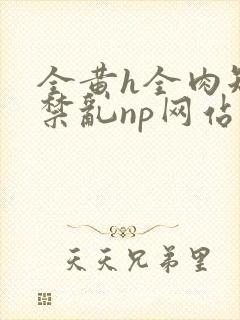 全黄h全肉短
禁乱np网站
天天兄弟里